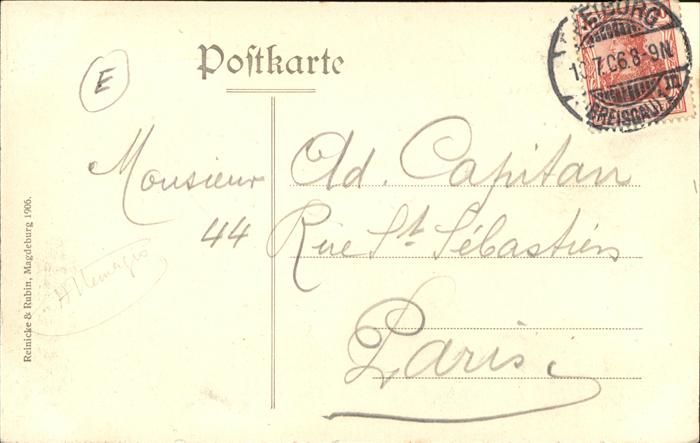 Postkarte
E
FREIBURG
7.06.8-9N.
(BREISGAU)
Monsieur Ad. Capitan
44 Rue St. Sébastien
Paris.
Allemagne
Reinicke & Rubin, Magdeburg 1906.